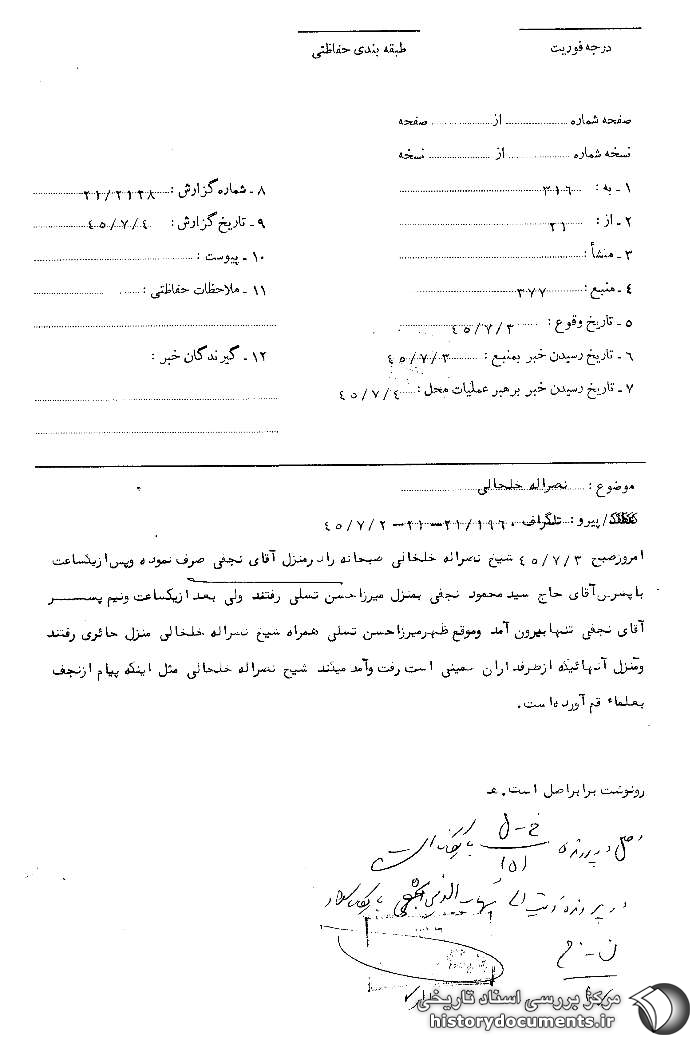 درجه فوریت
طبقه بندی حفاظتی
صفحه شماره از صفحه
نسخه شماره از نسخه
۱ - به : ۳۱۶
۲ - از : ۲۱
۳ - منشأ :
۴ - منبع : ۳۷۷
۵ - تاریخ وقوع : ۴۵/۷/۳
۶ - تاریخ رسیدن خبر بمنبع : ۴۵/۷/۳
۷ - تاریخ رسیدن خبر برهبر عملیات محل : ۴۵/۷/۴
۸ - شماره گزارش : ۲۱/۲۱۲۸
۹ - تاریخ گزارش : ۴۵/۷/۴
۱۰ - پیوست :
۱۱ - ملاحظات حفاظتی :
۱۲ - گیرندگان خبر :
موضوع : نصراله خلخالی
/پیرو : تلگراف ۲۱/۱۹۶۰-۲۱-۴۵/۷/۲
امروز صبح ۴۵/۷/۳ شیخ نصراله خلخالی صبحانه را در منزل آقای نجفی صرف نموده و پس از یکساعت
با پسرش آقای حاج سید محمود نجفی بمنزل میرزا حسن تسلی رفتند ولی بعد از یکساعت ونیم پسر
آقای نجفی تنها بیرون آمد وموقع ظهر میرزا حسن تسلی همراه شیخ نصراله خلخالی منزل حائری رفتند
ومنزل آنهائیکه از طرفداران سمینی است رفت وآمد میکند شیخ نصراله خلخالی مثل اینکه پیام از نجف
بعلماء قم آورده است.
رونوشت برابر اصل است. ه
اصل در پرونده خ-ل ۱۵۱ بایگانی است
در پرونده آیت اله شهاب الدین نجفی بایگانی
ن-خ
مرکز بررسی اسناد تاریخی
historydocuments.ir